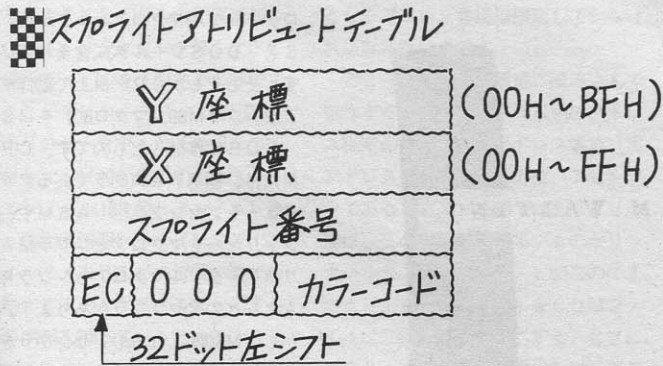 スプライトアトリビュートテーブル
Y座標 (00H~BFH)
X座標 (00H~FFH)
スプライト番号
EC 0 0 0 カラーコード
32ドット左シフト